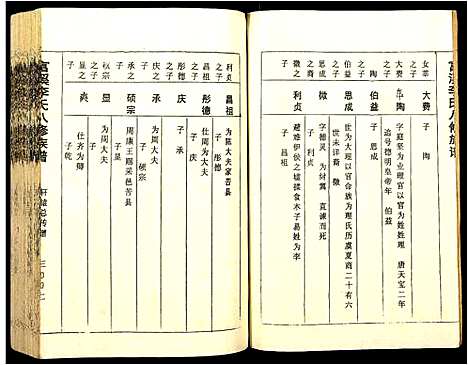 富溪李氏八修族谱
女莘
大费
子 陶
大费
之子
陶
字庭坚为大业理官以官为姓姓理 唐天宝二年
追号德明皇帝年 伯益
陶
之子
伯益
子 恩成
伯益
之子
恩成
世为大理以官命族为理氏历虞夏商二十有六
世未详裔 微
微
字德灵 为纣翼 直谏而死
子 利贞
微之
子
利贞
避难伊侯之墟揉食木子易姓为李
子 昌祖
利贞
之子
昌祖
为陈大夫家苦县
子 彤德
昌祖
之子
彤德
仕周为大夫
子 庆
彤德
之子
庆
子 承
庆
之子
承
为周大夫
子 硕宗
承之
子
硕宗
周康王赐采邑苦县
子 显
硕宗
之子
为周大夫
显之
子
仕齐为卿
子 乾
富溪李氏八修族谱
轩辕总传谱